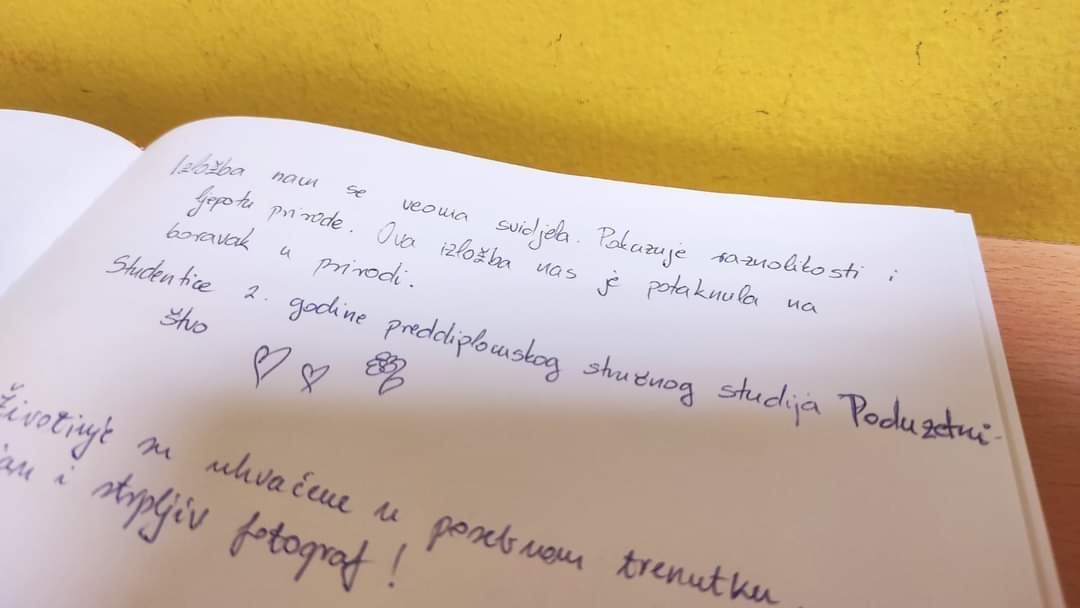 Izložba nam se veoma svidjela. Pokazuje raznolikosti i
ljepotu prirode. Ova izložba nas je potaknula na
boravak u prirodi.
Studentice 2. godine preddiplomskog stručnog studija Poduzetni-
štvo
životinje su uhvaćene u posebnom trenutku.
i strpljiv fotograf!